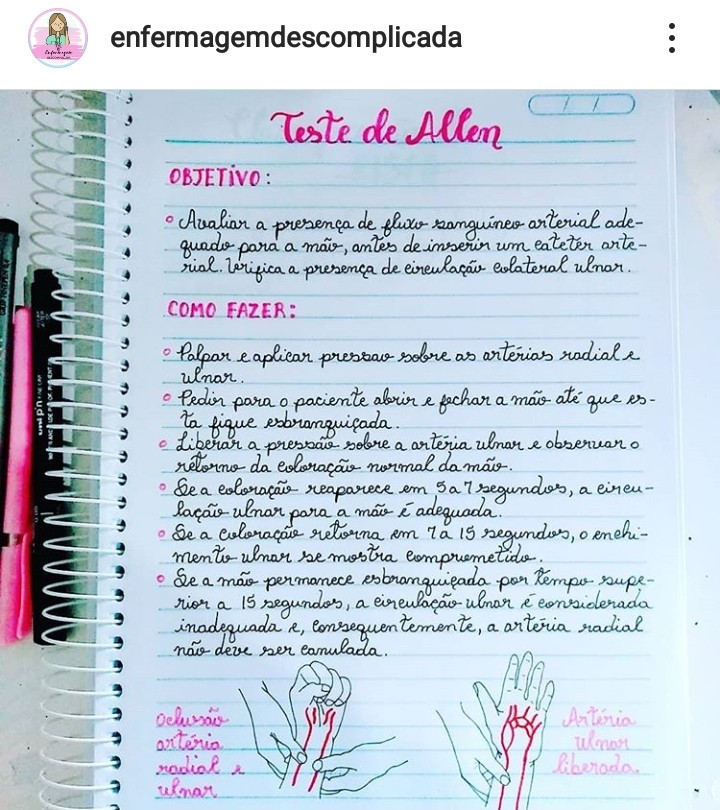 enfermagemdescomplicada
Teste de Allen
OBJETIVO:
Avaliar a presença de fluxo sanguíneo arterial ade-
quado para a mão, antes de inserir um cateter arte-
rial. Verifica a presença de circulação colateral ulnar.
COMO FAZER:
Palpar e aplicar pressão sobre as artérias radial e
ulnar.
Pedir para o paciente abrir e fechar a mão até que es-
ta fique esbranquiçada.
Liberar a pressão sobre a artéria ulnar e observar o
retorno da coloração normal da mão.
Se a coloração reaparece em 5 a 7 segundos, a circu-
lação ulnar para a mão é adequada.
Se a coloração retorna em 7 a 15 segundos, o enchi-
mento ulnar se mostra comprometido.
Se a mão permanece esbranquiçada por tempo supe-
rior a 15 segundos, a circulação ulnar é considerada
inadequada e, consequentemente, a artéria radial
não deve ser canulada.
Oclusão
artéria
radial e
ulnar
Artéria
Ulnar
liberada.